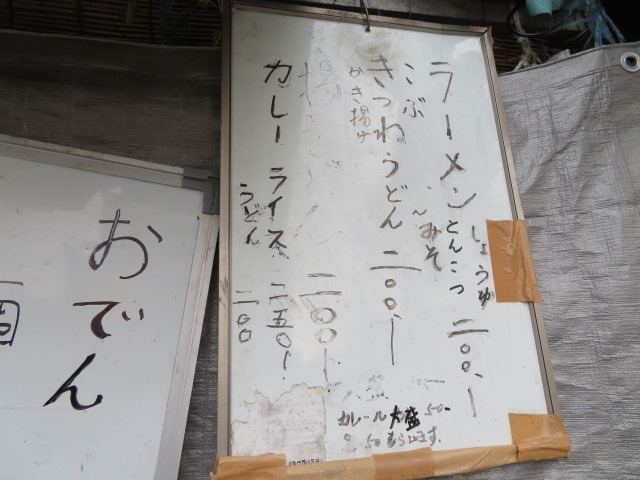 ラーメン しょうゆ とんこつ みそ 二〇〇、
こぶ
きつねうどん 二〇〇、
かき揚げ
二〇〇、
カレーライス 二五〇、
うどん 二〇〇
カレールー大盛 50
50もらいます。
おでん
一個